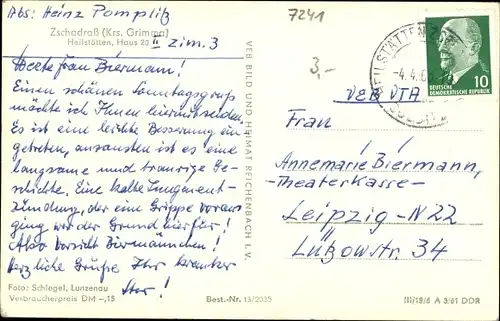 Abs: Heinz Pomplitz
Zschadraß (Krs. Grimma)
Heilstätten, Haus 20 II Zim. 3
Werte Frau Biermann!
Einen schönen Sonntagsgruß
möchte ich Ihnen hiermit senden
Es ist eine leichte Besserung ein-
getreten, ansonsten ist es eine
langsame und traurige Ge-
schichte. Eine kalte Lungenent-
zündung, der eine Grippe voran-
ging war der Grund hierfür!
Also Vorsicht Biermännchen!
Herzliche Grüße Ihr kranker
Foto: Schlegel, Lunzenau
Verbraucherpreis DM -,15
Best.-Nr. 13/2035
VEB BILD UND HEIMAT REICHENBACH I. V.
7241
3,-
HEILSTÄTTEN
-4.4.6
DEUTSCHE
DEMOKRATISCHE REPUBLIK
10
VEB VTA
Frau
Annemarie Biermann,
-Theaterkasse-
Leipzig-N 22
Lützowstr. 34
III/18/6 A 3/61 DDR